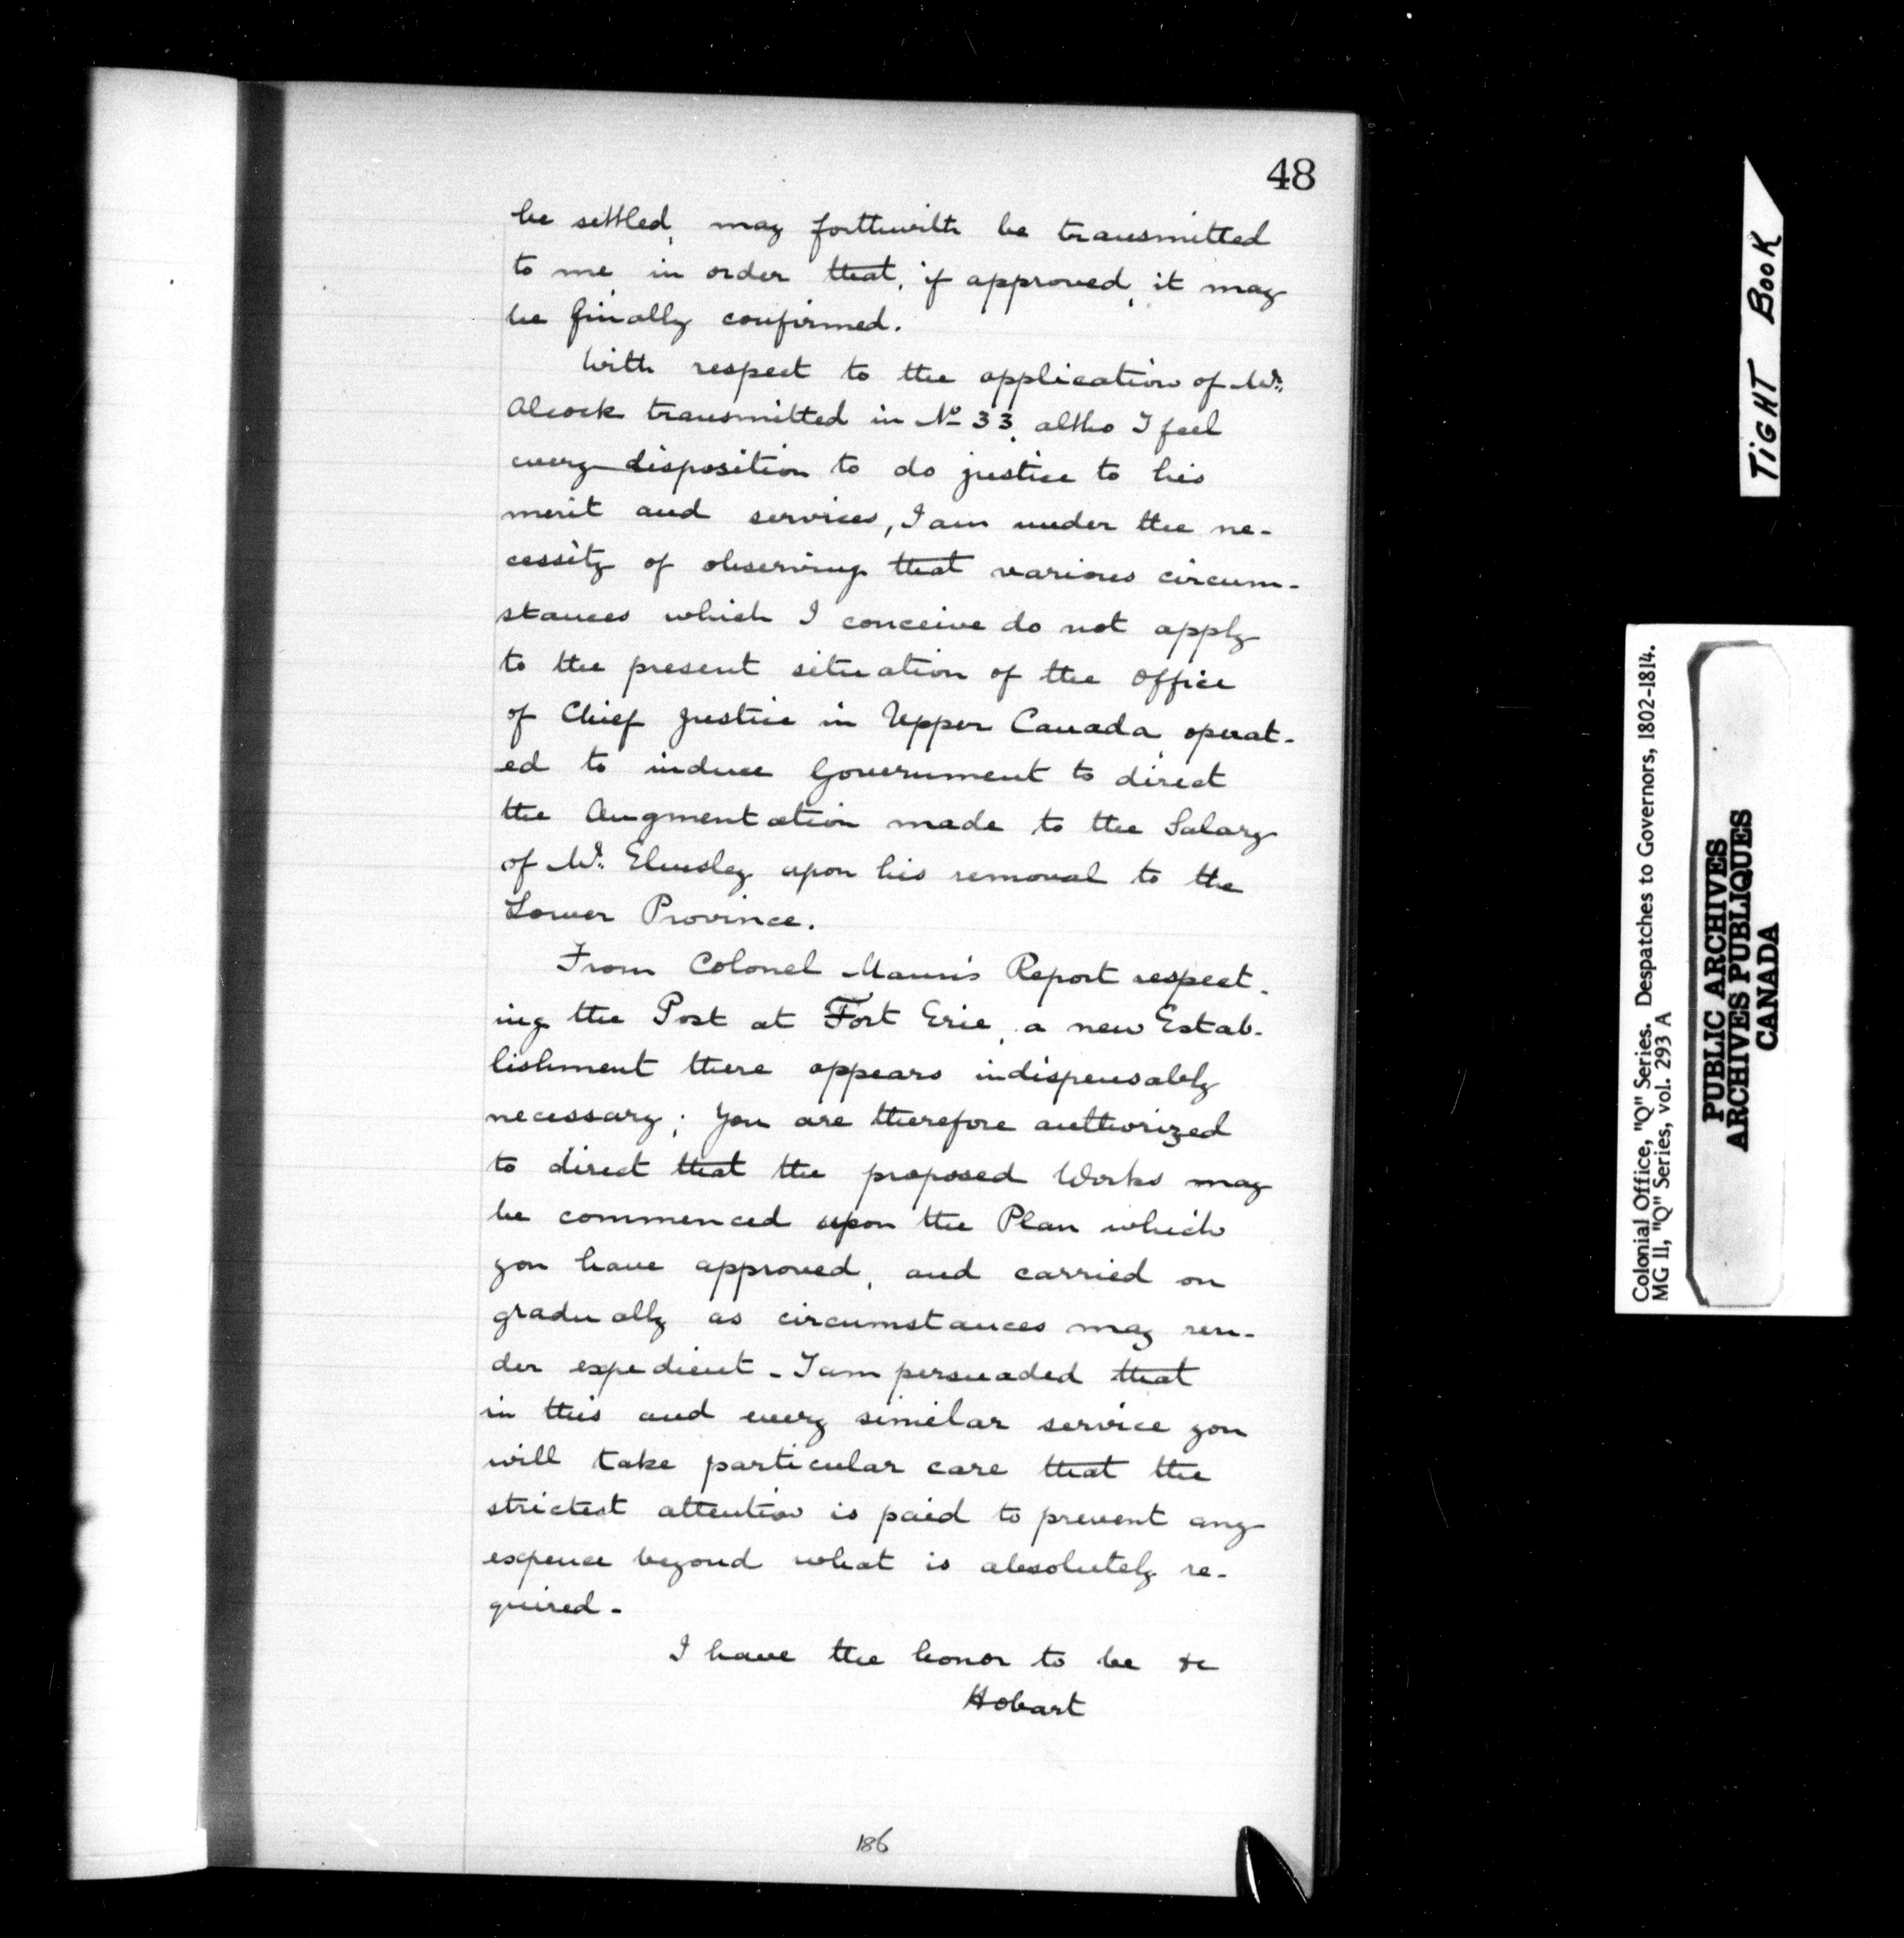 48
be settled, may forthwith be transmitted
to me, in order that, if approved, it may
be finally confirmed.
With respect to the application of Mr.
Alcock transmitted in No 33, altho I feel
every disposition to do justice to his
merit and services, I am under the ne-
cessity of observing that various circum-
stances which I conceive do not apply
to the present situation of the Office
of Chief Justice in Upper Canada, operat-
ed to induce Government to direct
the Augmentation made to the Salary
of Mr. Elmsley upon his removal to the
Lower Province.
From Colonel Mann's Report respect-
ing the Post at Fort Erie, a new Estab-
lishment there appears indispensably
necessary; You are therefore authorized
to direct that the proposed Works may
be commenced upon the Plan which
you have approved, and carried on
gradually as circumstances may ren-
der expedient - I am persuaded that
in this and every similar service you
will take particular care that the
strictest attention is paid to prevent any
expence beyond what is absolutely re-
quired -
I have the honor to be &c
Hobart
186
TIGHT BOOK
Colonial Office, "Q" Series. Despatches to Governors, 1802-1814.
MG 11, "Q" Series, vol. 293 A
PUBLIC ARCHIVES
ARCHIVES PUBLIQUES
CANADA